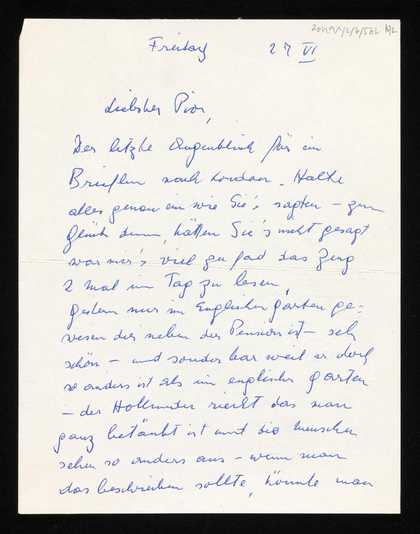 Freitag 27 VI
Liebster Pior,
Der letzte Augenblick für ein
Brieflein nach London. Halte
alles genau ein wie Sie's sagten – zum
Glück denn, hätten Sie's nicht gesagt
war mir's viel zu fad das Zeug
2 mal im Tag zu lesen,
gestern nur im Englischen Garten ge=
wesen der neben der Pension ist – sehr
schön – und sonderbar weil er doch
so anders ist als ein englischer Garten
– der Hollunder riecht das man
ganz betäubt ist und die Menschen
sehen so anders aus – wenn man
das beschreiben sollte, könnte man